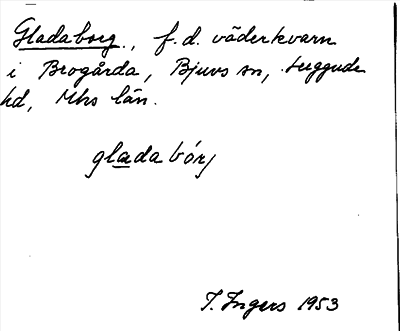 Gladaborg., f.d. väderkvarn
i Brogårda, Bjuvs sn, Luggude
hd, Mhs län.
glada bórj
I. Ingers 1953